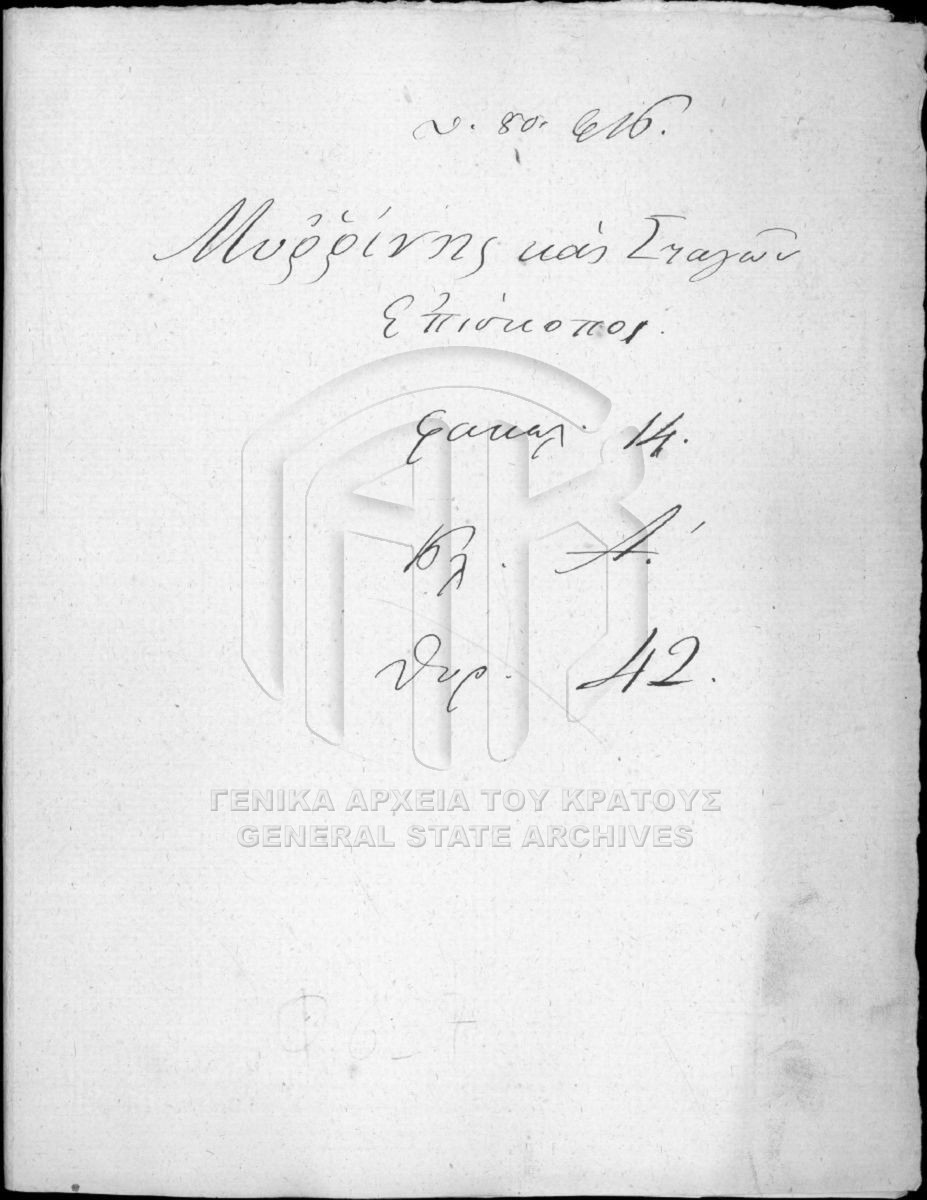 ν. 80. φ16.
Μυῤῥίνης καὶ Σταγῶν
Ἐπίσκοποι.
φακελ. 14.
Κλ. Α΄.
Θυρ. 42.
ΓΕΝΙΚΑ ΑΡΧΕΙΑ ΤΟΥ ΚΡΑΤΟΥΣ
GENERAL STATE ARCHIVES